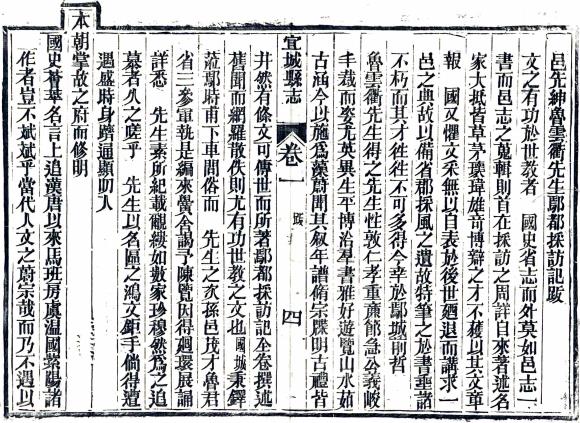 邑先紳魯雲衢先生鄢都採訪記跋
文之有功於世教者　國史省志而外莫如邑志一
書而邑志之蒐輯則首在採訪之周詳自來著述名
家大抵皆草茅璞瑋雄奇博辯之才不獲以其文章
報　國又懼文采無以自表於後世廼退而講求一
邑之典故以備省郡採風之遺故特筆之於書垂諸
不朽而其才徃徃不可多得今幸於鄢城前哲
魯雲衢先生得之先生性敦仁孝重廉節急公義岐
手載而姿尤英異生平博洽羣書雅好遊覽山水茹
古涵今以施爲藻蔚聞其叙年譜脩宗牒明古禮皆
宜城縣志　卷一　跋　四
井然有條文可傳世而所著鄢都採訪記全卷撰述
舊聞而網羅散佚則尤有功世教之文也國城秉鐸
蒞鄢時甫下車問俗而　先生之次孫邑茂才魯君
省三參軍執是編來黌舍謁予陳覽因得廻環展誦
詳悉　先生素所紀載覼縷如數家珍穆然爲之追
慕者久之嗟乎　先生以名區之鴻文鉅手倘得遭
遇盛時身躋通顯叨入
本朝堂故之府而修明
國史菁華名言上追漢唐以來馬班房虞溫國紫陽諸
作者豈不斌斌乎當代人文之蔚宗哉而乃不遇以